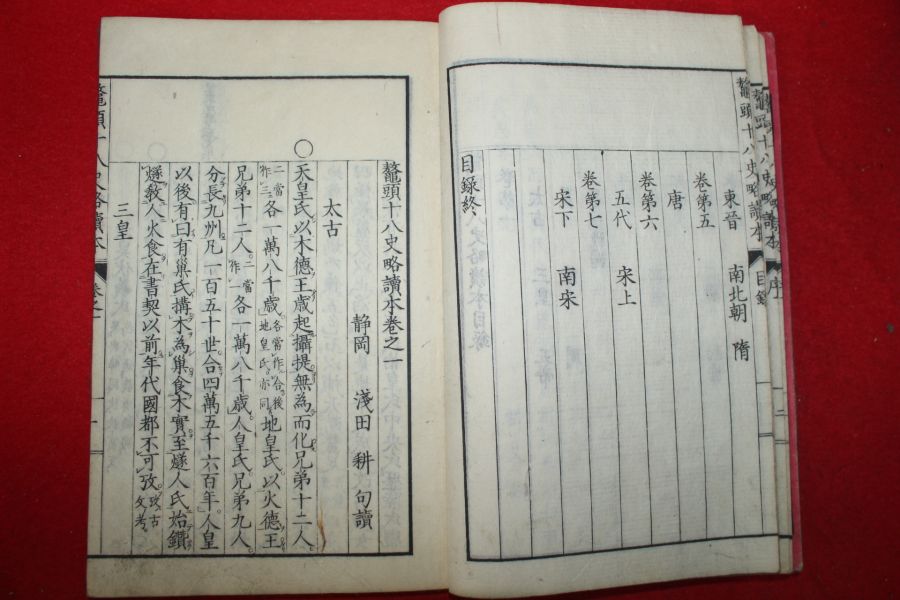 鼇頭十八史略讀本
序
鼇頭十八史略讀本
目錄
二
東晉 南北朝 隋
卷第五
唐
卷第六
五代 宋上
卷第七
宋下 南宋
目録終
鼇頭十八史略讀本卷之一
靜岡 淺田 耕 句讀
太古
○天皇氏以木德王歲起攝提無為而化兄弟十二人
二當作三各一萬八千歲各當作合後地皇氏亦同地皇氏以火德王
兄弟十二人二當作一各一萬八千歲人皇氏兄弟九人
分長九州凡一百五十世合四萬五千六百年人皇
以後有曰有巢氏搆木為巢食木實至燧人氏始鑽
燧教人火食在書契以前年代國都不可攷攷古文考
三皇
鼇頭十八史略讀本
卷之一
一